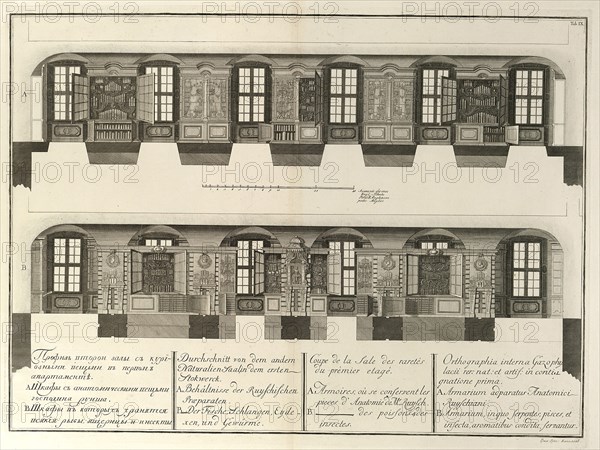 Tab. IX.
A
B
Профиль второй залы съ курі-
озными вещьми въ первыхъ
апартаментѣ.
A. Шкафы съ анатомическими вещьми
господина Руиша.
B. Шкафы въ которыхъ хранятся
всякія рыбы, ящерицы и инсекты
Durchschnitt von dem andern
Naturalien Saal in dem ersten
Stokwerck.
A. Behältnisse der Ruyschischen
Præparaten
B. Der Fische, Schlangen, Eyde-
xen, und Gewürme.
Coupe de la Sale des raretés
au premier etage.
A. Armoires, où se conservent les
pieces d'Anatomie de Mr. Ruysch.
B. des poissons et des
insectes.
Orthographia interna Gazophy-
lacii rer. nat. et artif. in conti-
gnatione prima.
A. Armarium apparatus Anatomici
Ruyschiani.
B. Armarium, in quo serpentes, pisces, et
insecta, aromatibus condita, servantur.
PHOTO12